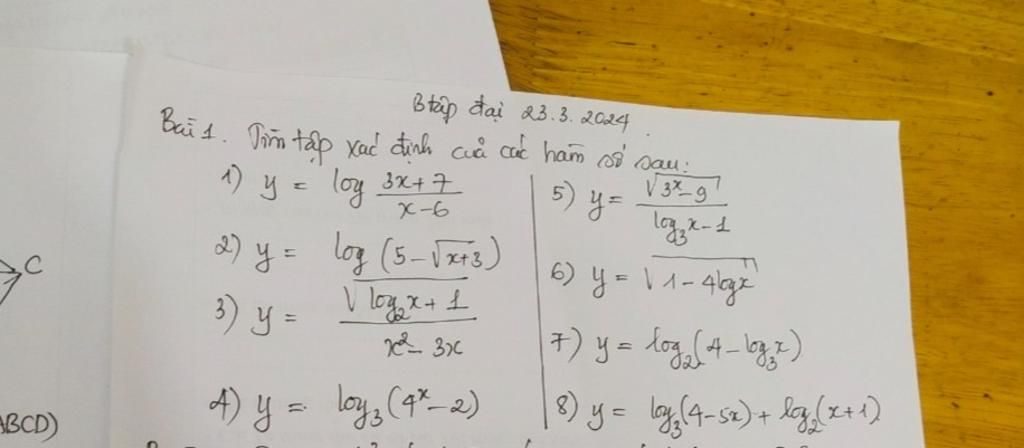 Btập đại 23.3.2024.
Bài 1. Tìm tập xác định của các hàm số sau:
1) y = log (3x+7)/(x-6)
2) y = log (5-√(x+3))
3) y = √(log₂x+1)/(x²-3x)
4) y = log₃(4ˣ-2)
5) y = √(3ˣ-9)/(log₃x-1)
6) y = √(1-4logx)
7) y = log₂(4-log₃x)
8) y = log₃(4-5x)+log₂(x+1)
C
ABCD)